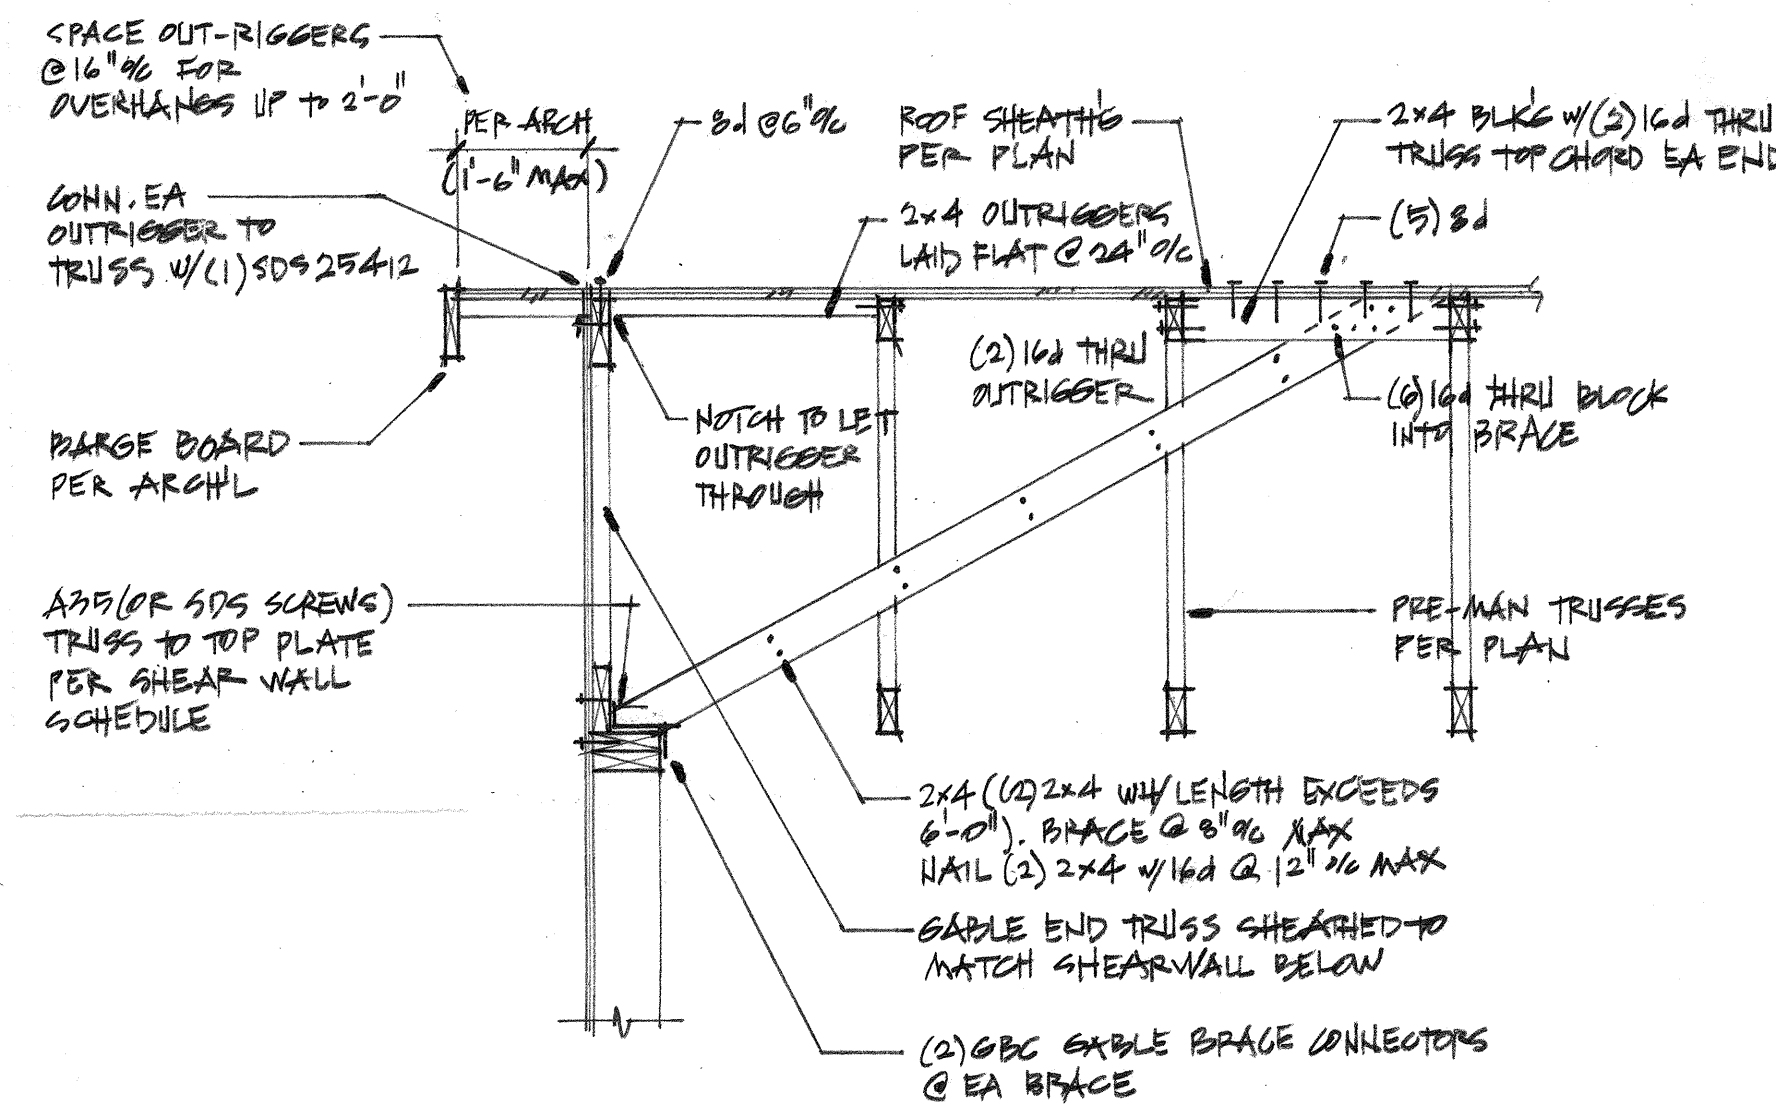 SPACE OUT-RIGGERS
@ 16" o/c FOR
OVERHANGS UP TO 2'-0"
PER ARCH
(1'-6" MAX)
8d @ 6" o/c
ROOF SHEATH'G
PER PLAN
2x4 BLK'G w/(2) 16d THRU
TRUSS TOP CHORD EA END
CONN. EA
OUTRIGGER TO
TRUSS W/(1) SDS25412
2x4 OUTRIGGERS
LAID FLAT @ 24" o/c
(5) 8d
(2) 16d THRU
OUTRIGGER
(6) 16d THRU BLOCK
INTO BRACE
BARGE BOARD
PER ARCH'L
NOTCH TO LET
OUTRIGGER
THROUGH
A35 (OR SDS SCREWS)
TRUSS TO TOP PLATE
PER SHEAR WALL
SCHEDULE
PRE-MAN TRUSSES
PER PLAN
2x4 ((2) 2x4 WH/LENGTH EXCEEDS
6'-0"). BRACE @ 8" o/c MAX
NAIL (2) 2x4 w/16d @ 12" o/c MAX
GABLE END TRUSS SHEATHED TO
MATCH SHEARWALL BELOW
(2) GBC GABLE BRACE CONNECTORS
@ EA BRACE